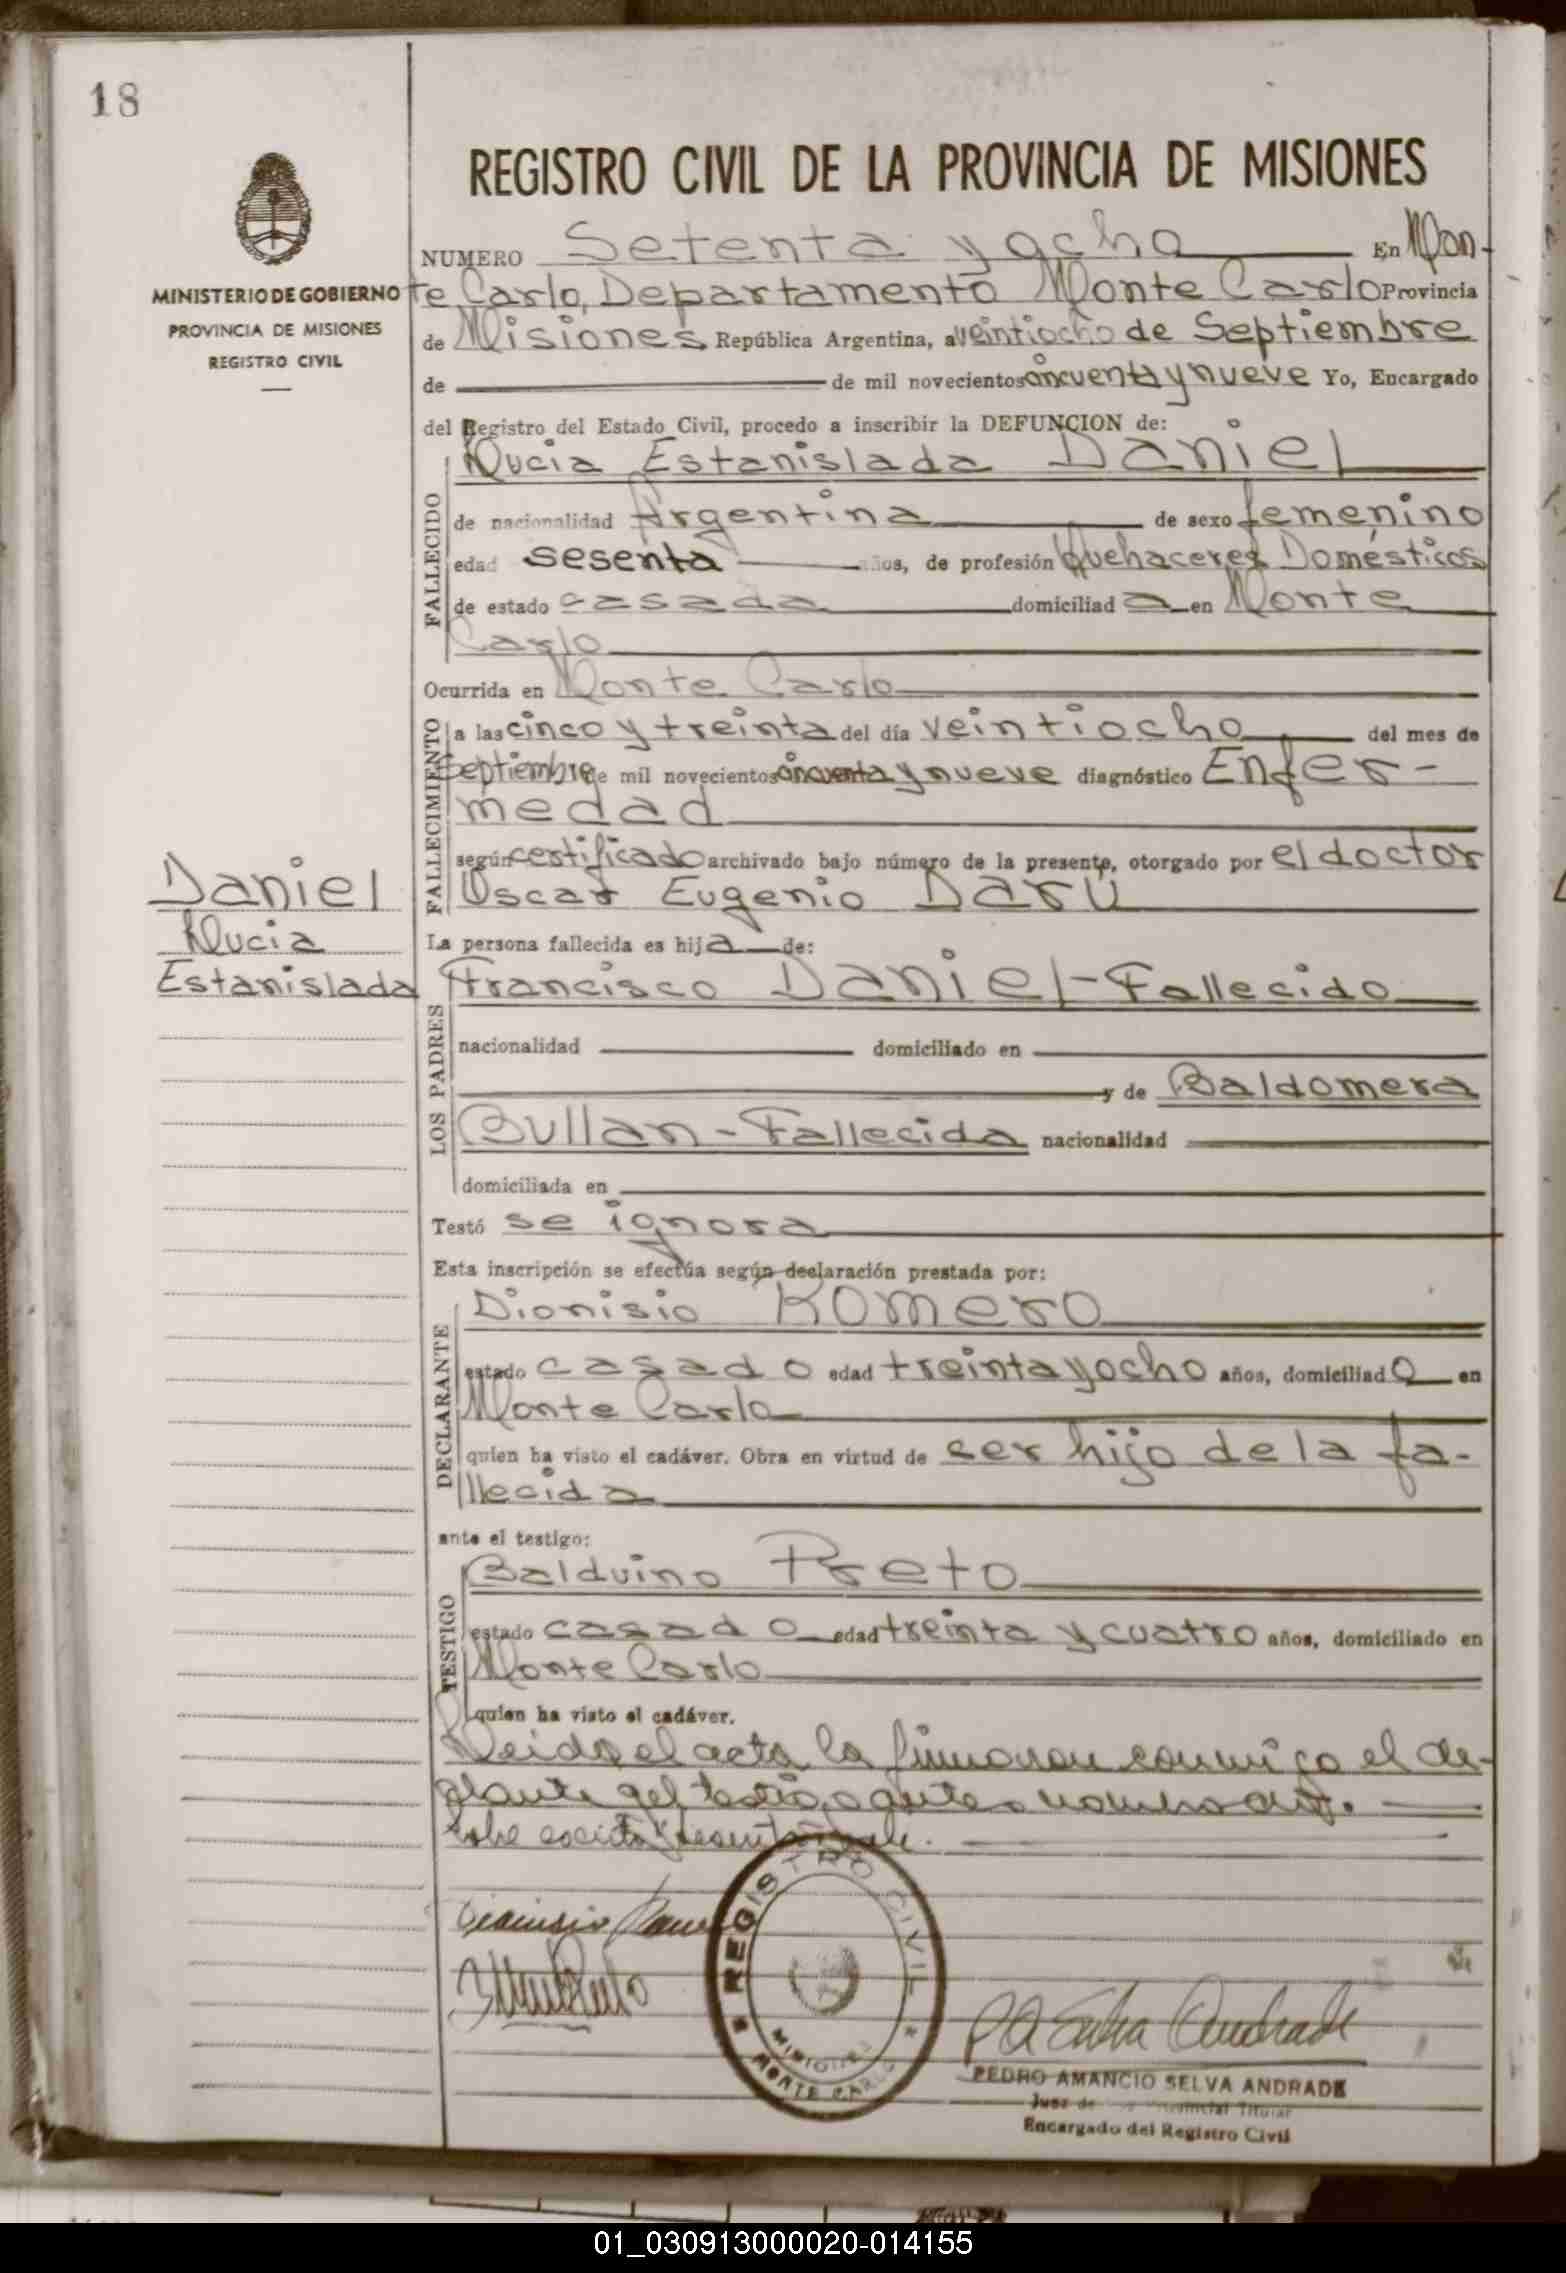 18
REGISTRO CIVIL DE LA PROVINCIA DE MISIONES
MINISTERIO DE GOBIERNO
PROVINCIA DE MISIONES
REGISTRO CIVIL
NUMERO Setenta y ocho En Mon-
te Carlo, Departamento Monte Carlo Provincia
de Misiones República Argentina, a veintiocho de Septiembre
de de mil novecientos cincuenta y nueve Yo, Encargado
del Registro del Estado Civil, procedo a inscribir la DEFUNCION de:
Lucia Estanislada Daniel
FALLECIDO
de nacionalidad Argentina de sexo femenino
edad sesenta años, de profesión Quehaceres Domésticos
de estado casada domiciliad a en Monte
Carlo
Ocurrida en Monte Carlo
FALLECIMIENTO
a las cinco y treinta del día veintiocho del mes de
Septiembre de mil novecientos cincuenta y nueve diagnóstico Enfer-
medad
según certificado archivado bajo número de la presente, otorgado por el doctor
Oscar Eugenio Darú
Daniel
Lucia
Estanislada
La persona fallecida es hija de:
LOS PADRES
Francisco Daniel - Fallecido
nacionalidad domiciliado en
y de Baldomera
Bullan - Fallecida nacionalidad
domiciliada en
Testó se ignora
Esta inscripción se efectúa según declaración prestada por:
DECLARANTE
Dionisio Romero
estado casado edad treinta y ocho años, domiciliad o en
Monte Carlo
quien ha visto el cadáver. Obra en virtud de ser hijo de la fa-
llecida
ante el testigo:
TESTIGO
Balduino Preto
estado casado edad treinta y cuatro años, domiciliado en
Monte Carlo
quien ha visto el cadáver.
Leida el acta la firmaron conmigo el de-
REGISTRO CIVIL
MISIONES
MONTE CARLO
PEDRO AMANCIO SELVA ANDRADE
Juez de Titular
Encargado del Registro Civil
01_030913000020-014155